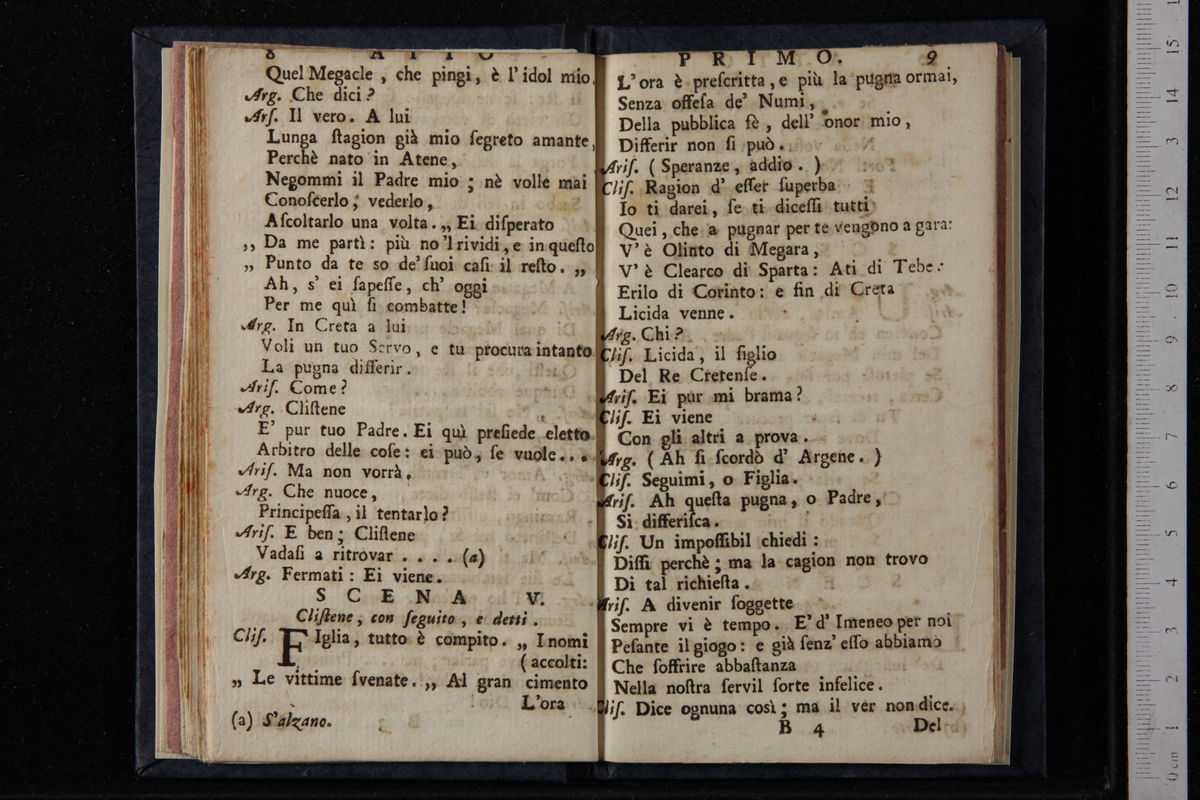 8 ATTO
Quel Megacle, che pingi, è l'idol mio.
Arg. Che dici?
Arſ. Il vero. A lui
Lunga ſtagion già mio ſegreto amante,
Perchè nato in Atene,
Negommi il Padre mio; nè volle mai
Conoſcerlo, vederlo,
Aſcoltarlo una volta. „ Ei diſperato
,, Da me partì: più no'l rividi, e in queſto
„ Punto da te so de' ſuoi caſi il reſto. „
Ah, s' ei ſapeſſe, ch' oggi
Per me quì ſi combatte!
Arg. In Creta a lui
Voli un tuo Servo, e tu procura intanto
La pugna differir.
Ariſ. Come?
Arg. Cliſtene
E' pur tuo Padre. Ei quì preſiede eletto
Arbitro delle coſe: ei può, ſe vuole...
Ariſ. Ma non vorrà.
Arg. Che nuoce,
Principeſſa, il tentarlo?
Ariſ. E ben; Cliſtene
Vadaſi a ritrovar .... (a)
Arg. Fermati: Ei viene.
SCENA V.
Cliſtene, con ſeguito, e detti.
Cliſ. FIglia, tutto è compito. „ I nomi
(accolti:
„ Le vittime ſvenate. „ Al gran cimento
L'ora
(a) S'alzano.
PRIMO. 9
L'ora è preſcritta, e più la pugna ormai,
Senza offeſa de' Numi,
Della pubblica fè, dell' onor mio,
Differir non ſi può.
Ariſ. (Speranze, addio.)
Cliſ. Ragion d' eſſer ſuperba
Io ti darei, ſe ti diceſſi tutti
Quei, che a pugnar per te vengono a gara:
V' è Olinto di Megara,
V' è Clearco di Sparta: Ati di Tebe:
Erilo di Corinto: e fin di Creta
Licida venne.
Arg. Chi?
Cliſ. Licida, il figlio
Del Re Cretenſe.
Ariſ. Ei pur mi brama?
Cliſ. Ei viene
Con gli altri a prova.
Arg. (Ah ſi ſcordò d' Argene.)
Cliſ. Seguimi, o Figlia.
Ariſ. Ah queſta pugna, o Padre,
Si differiſca.
Cliſ. Un impoſſibil chiedi:
Diſſi perchè; ma la cagion non trovo
Di tal richieſta.
Ariſ. A divenir ſoggette
Sempre vi è tempo. E' d' Imeneo per noi
Peſante il giogo: e già ſenz' eſſo abbiamo
Che ſoffrire abbaſtanza
Nella noſtra ſervil ſorte infelice.
Cliſ. Dice ognuna così; ma il ver non dice.
B 4 Del